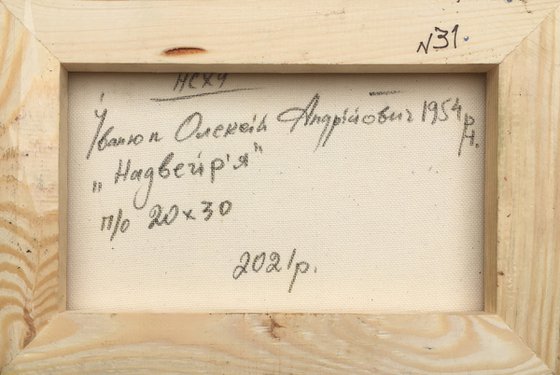 N31.
НСХУ
Іванюк Олексій Андрійович 1954 р.н.
„Надвечір'я"
п/о 20x30
2021р.